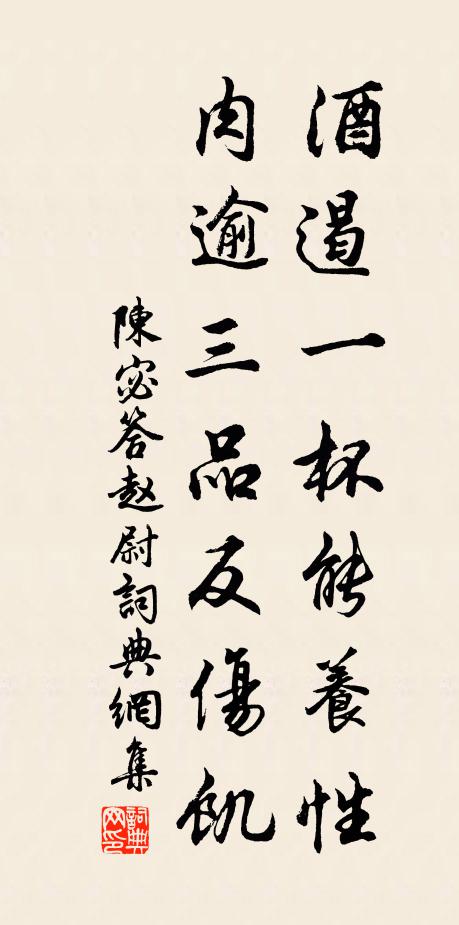 酒遏一杯能養性
肉逾三品反傷飢
陳宓答赵尉詞典網集
詞典
网印